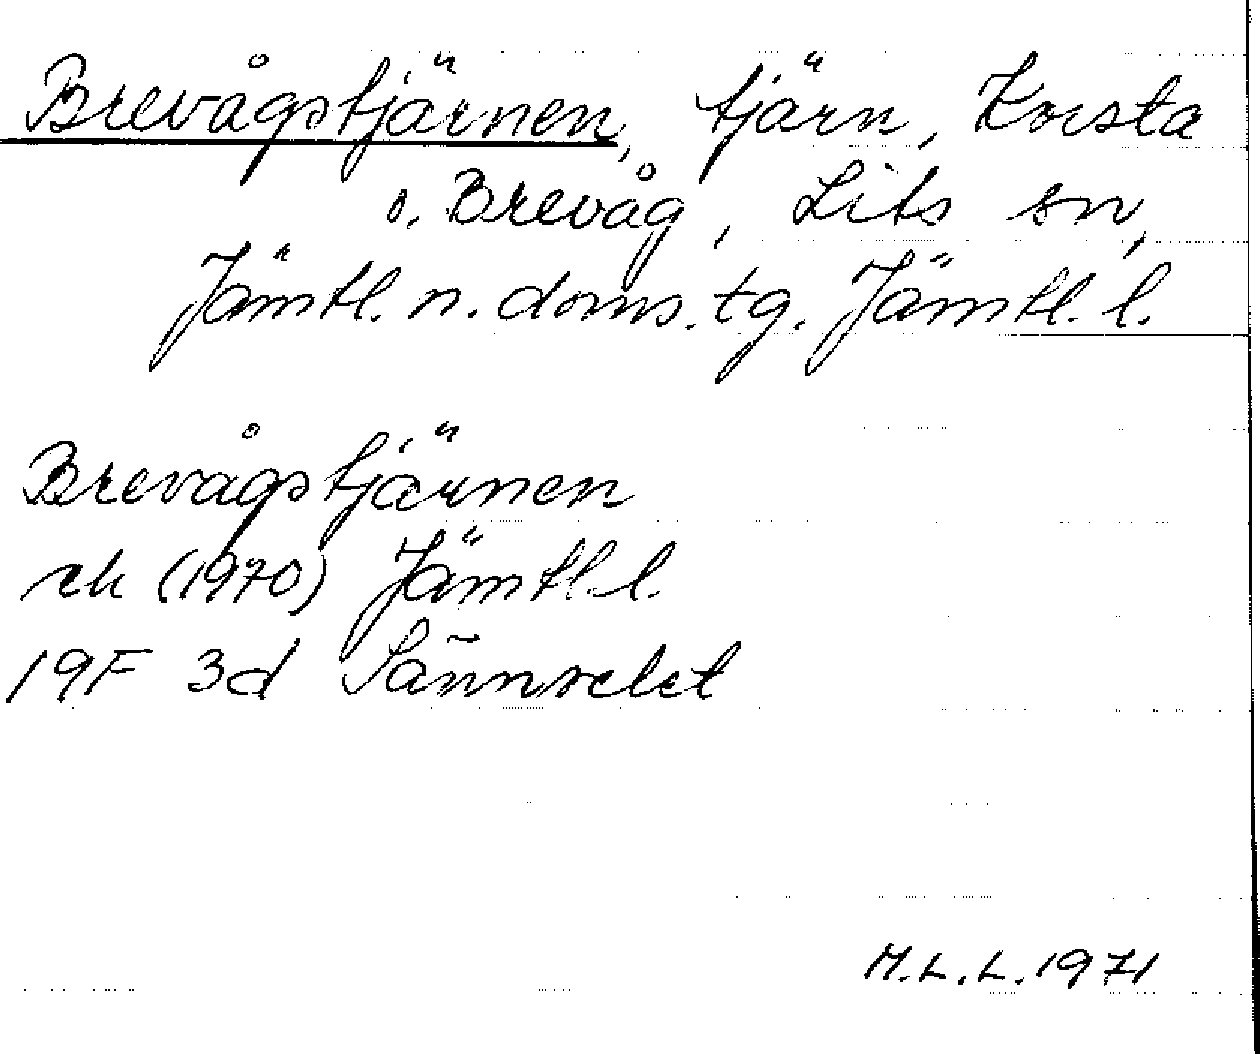 Brevågstjärnen, tjärn, Korsta
o. Brevåg, Lits sn,
Jämtl. n. doms. tg. Jämtl. l.
Brevågstjärnen
rk (1970) Jämtl. l.
19F 3d Sännselet
M.L.L. 1971